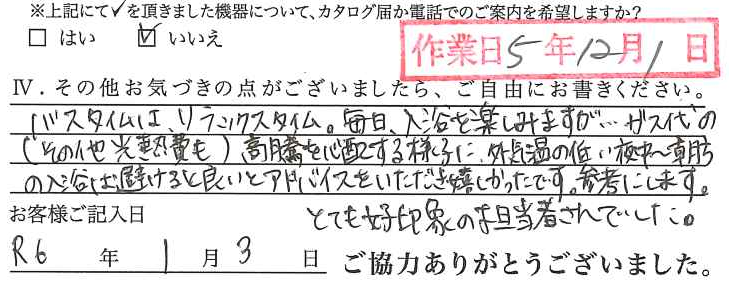 ※上記にて✓を頂きました機器について、カタログ届か電話でのご案内を希望しますか?
□ はい ☑ いいえ
作業日 5年12月1日
Ⅳ.その他お気づきの点がございましたら、ご自由にお書きください。
バスタイムは、リラックスタイム。毎日、入浴を楽しみますが…ガス代の
(その他光熱費も)高騰を心配する様子に、外気温の低い夜中〜明方
の入浴は避けると良いとアドバイスをいただき嬉しかったです。参考にします。
お客様ご記入日
とても好印象の担当者さんでした。
R6年1月3日 ご協力ありがとうございました。